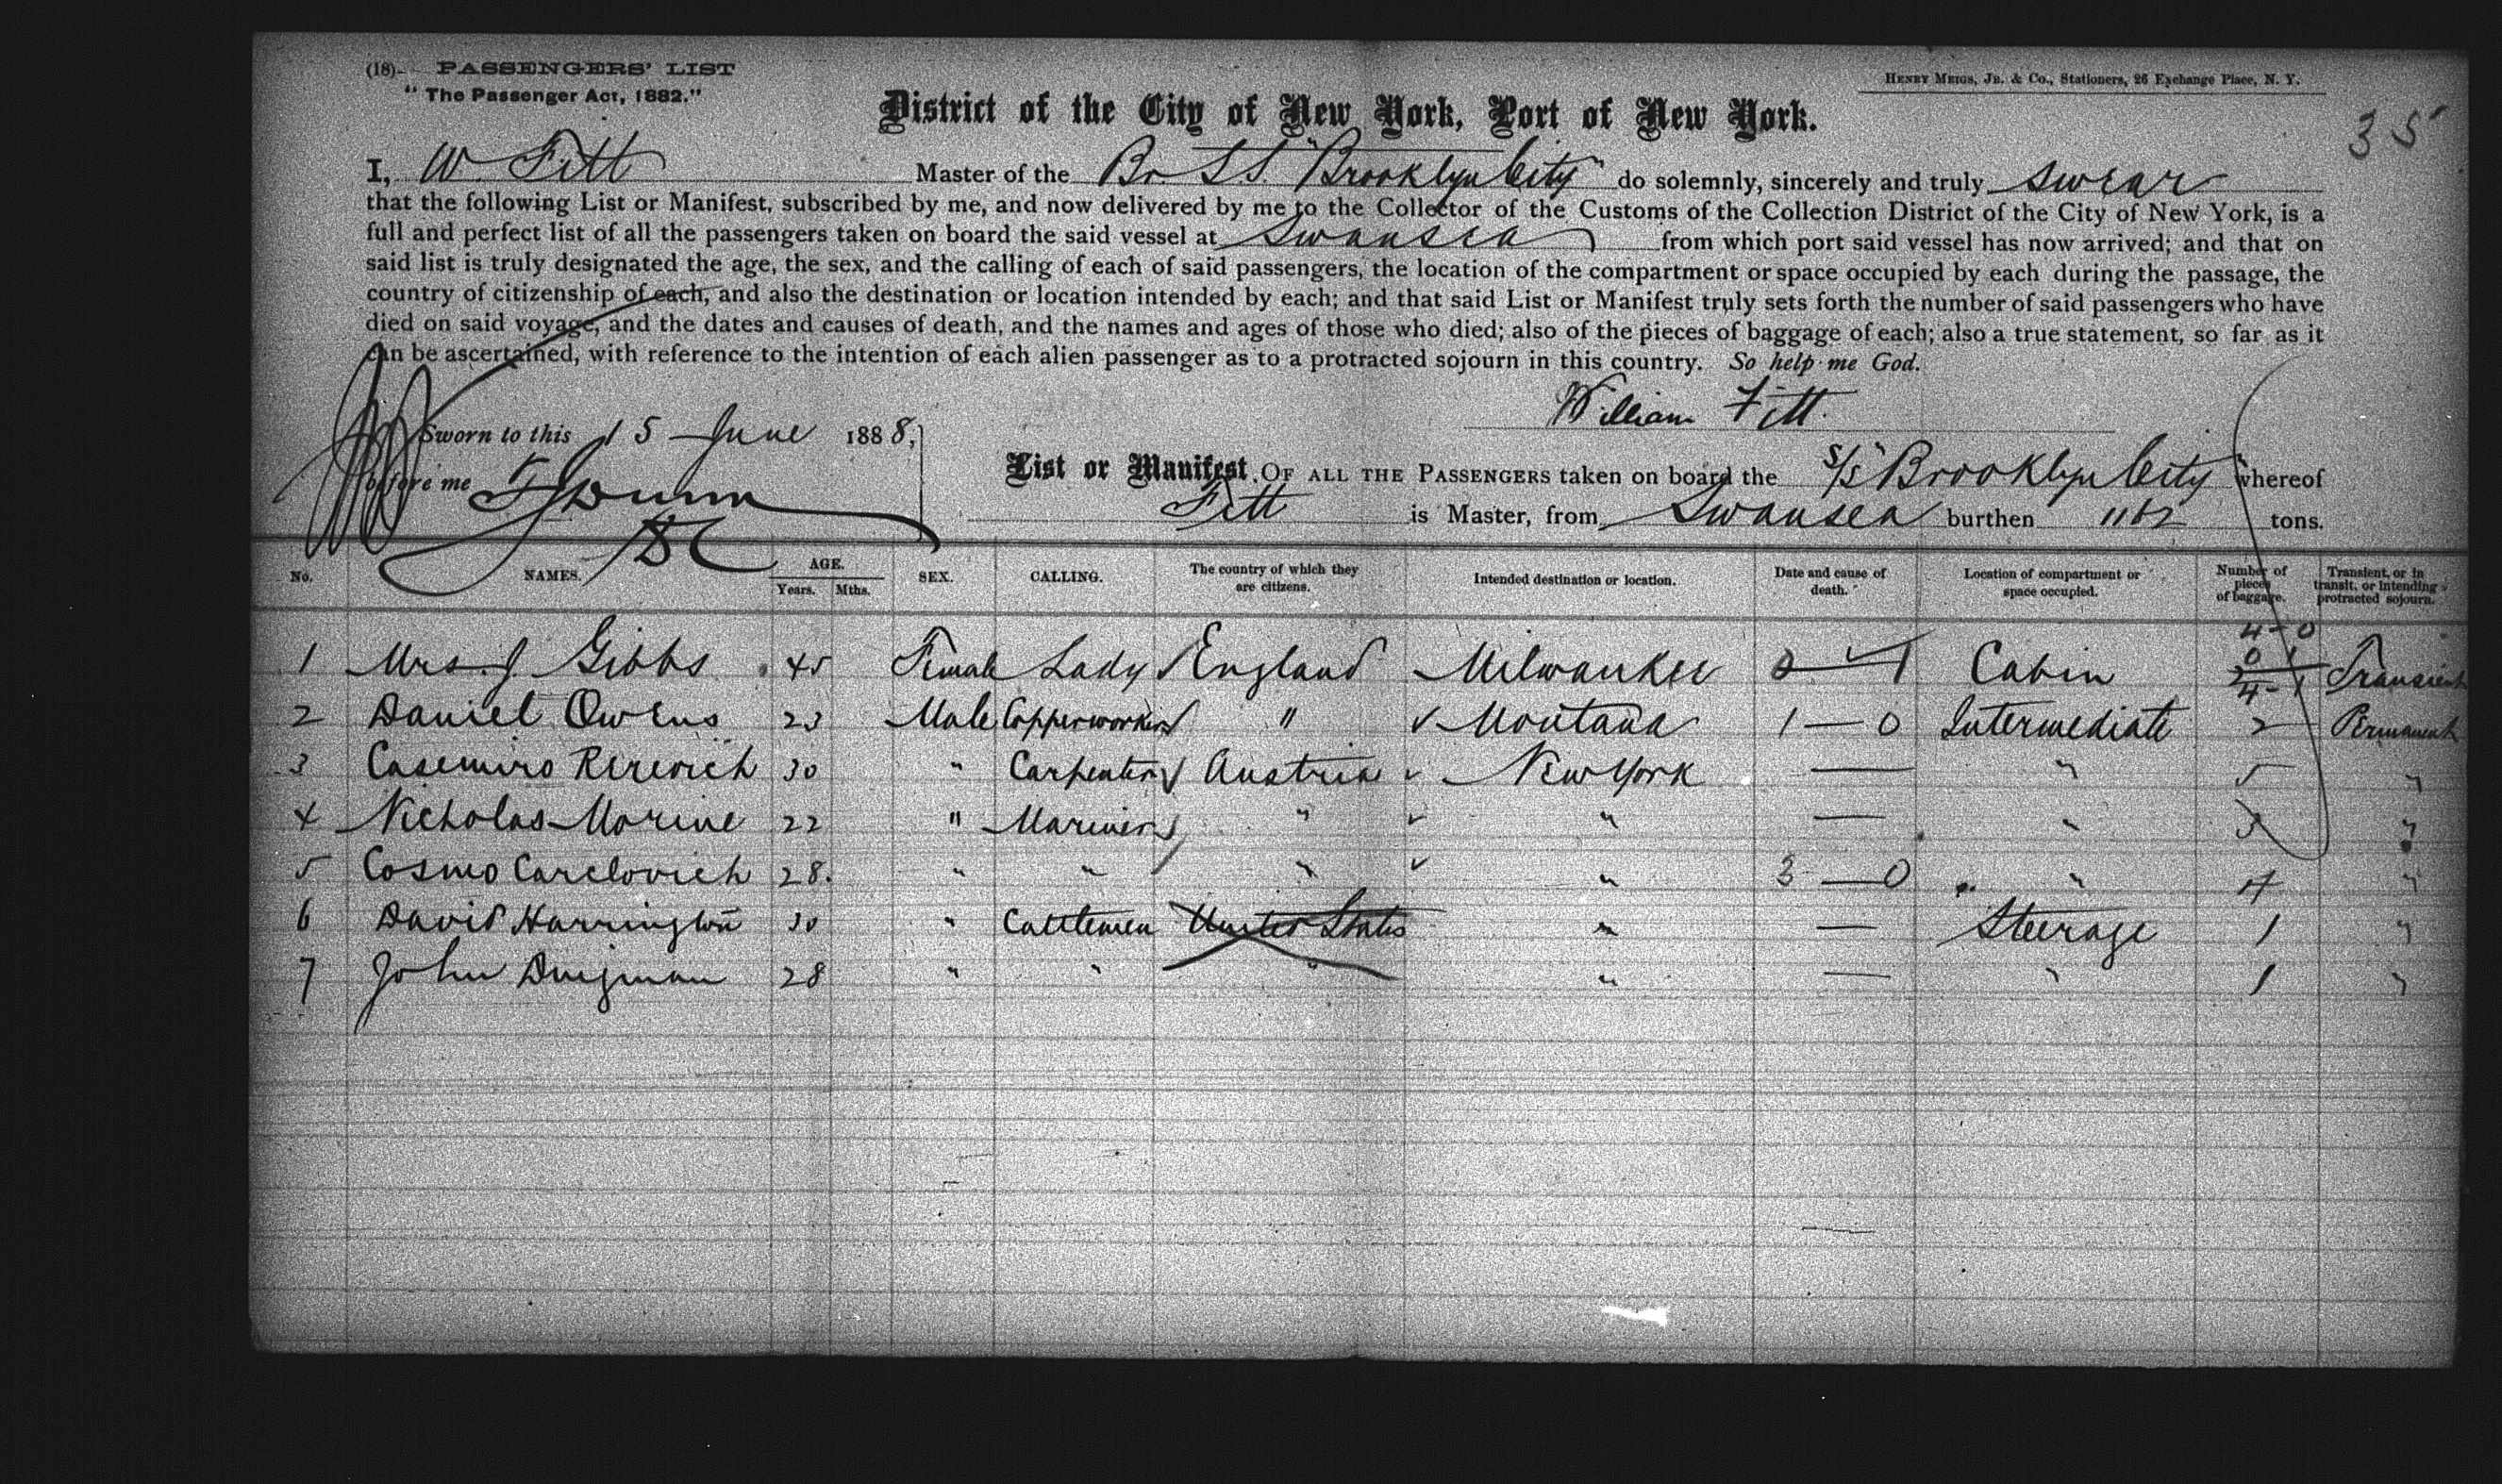 (18) PASSENGERS' LIST
"The Passenger Act, 1882."
HENRY MEIGS, JR. & CO., Stationers, 26 Exchange Place, N. Y.
District of the City of New York, Port of New York.
35
I, W. Fitt Master of the Br. S.S. "Brooklyn City" do solemnly, sincerely and truly swear
that the following List or Manifest, subscribed by me, and now delivered by me to the Collector of the Customs of the Collection District of the City of New York, is a
full and perfect list of all the passengers taken on board the said vessel at Swansea from which port said vessel has now arrived; and that on
said list is truly designated the age, the sex, and the calling of each of said passengers, the location of the compartment or space occupied by each during the passage, the
country of citizenship of each, and also the destination or location intended by each; and that said List or Manifest truly sets forth the number of said passengers who have
died on said voyage, and the dates and causes of death, and the names and ages of those who died; also of the pieces of baggage of each; also a true statement, so far as it
can be ascertained, with reference to the intention of each alien passenger as to a protracted sojourn in this country. So help me God.
William Fitt
Sworn to this 15 June 1888,
before me
List or Manifest OF ALL THE PASSENGERS taken on board the S/S "Brooklyn City" whereof
Fitt is Master, from Swansea burthen tons.
No. NAMES. AGE. Years. Mths. SEX. CALLING. The country of which they are citizens. Intended destination or location. Date and cause of death. Location of compartment or space occupied. Number of pieces of baggage. Transient, or in transit, or intending protracted sojourn.
4-0
0 1
1 Mrs J Gibbs 45 Female Lady England Milwaukee Cabin 4-1 Transient
2 Daniel Owens 23 Male Copperworker " Montana 1-0 Intermediate 2 Permanent
3 Casemiro 30 " Carpenter Austria New York — " 5 "
4 Nicholas Morine 22 " Mariner " " — " "
5 Cosmo Carclovich 28. " " " " 3-0 " 4 "
6 David Harrington 30 " Cattlemen United States " — Steerage 1 "
7 John 28 " " " " — " 1 "